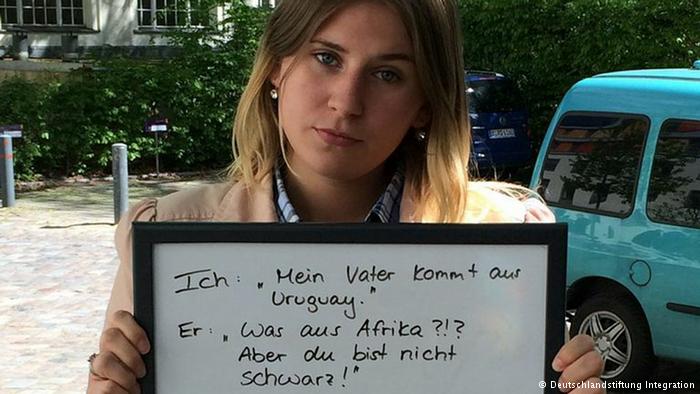 Ich: „Mein Vater kommt aus
Uruguay."
Er: „Was aus Afrika?!?
Aber du bist nicht
schwarz!"
© Deutschlandstiftung Integration